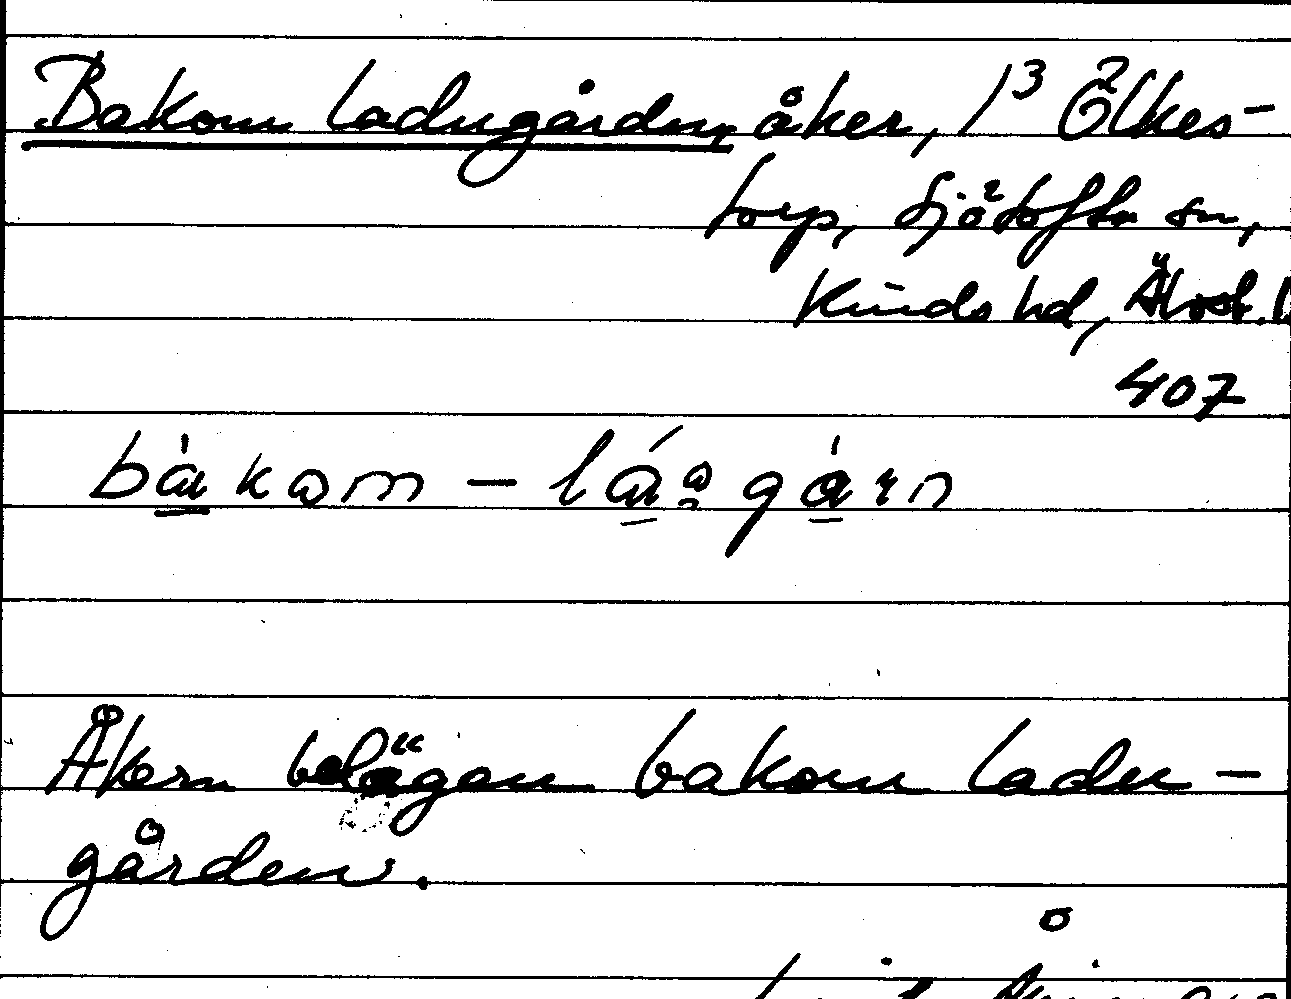 Bakom ladugården, åker, 1³ Ölkes-
torp, Sjötofta sn,
Kinds hd, Älvsb. l.
407
bàkam – láagàrn
Åkern belägen bakom ladu-
gården.